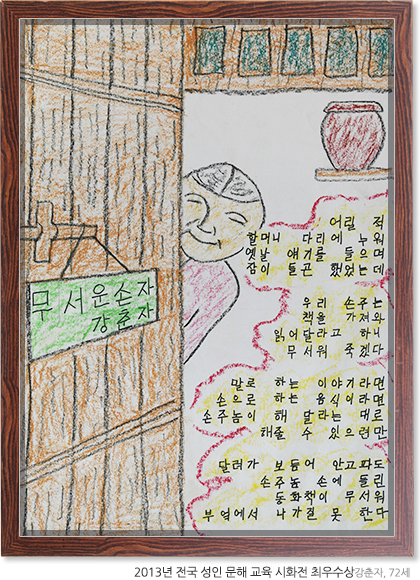 무서운손자
강춘자
어릴 적
할머니 다리에 누워
옛날 얘기를 들으며
잠이 들곤 했었는데
우리 손주는
책을 가져와
읽어달라고 하니
무서워 죽겠다
말로 하는 이야기라면
손으로 하는 음식이라면
손주놈이 해 달라는 대로
해줄 수 있으련만
달려가 보듬어 안고파도
손주놈 손에 들린
동화책이 무서워
부엌에서 나가질 못 한다
2013년 전국 성인 문해 교육 시화전 최우수상강춘자, 72세